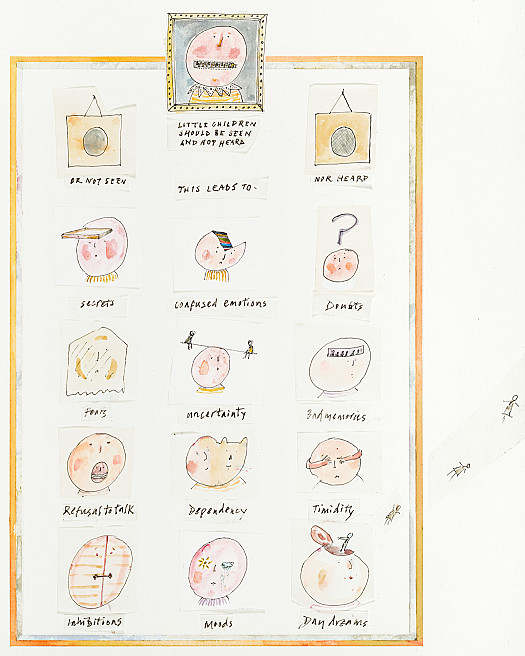 LITTLE CHILDREN
SHOULD BE SEEN
AND NOT HEARD
OR NOT SEEN
THIS LEADS TO-
NOR HEARD
secrets
confused emotions
Doubts
fears
uncertainty
Bad memories
Refusal to talk
Dependency
Timidity
Inhibitions
Moods
Day dreams